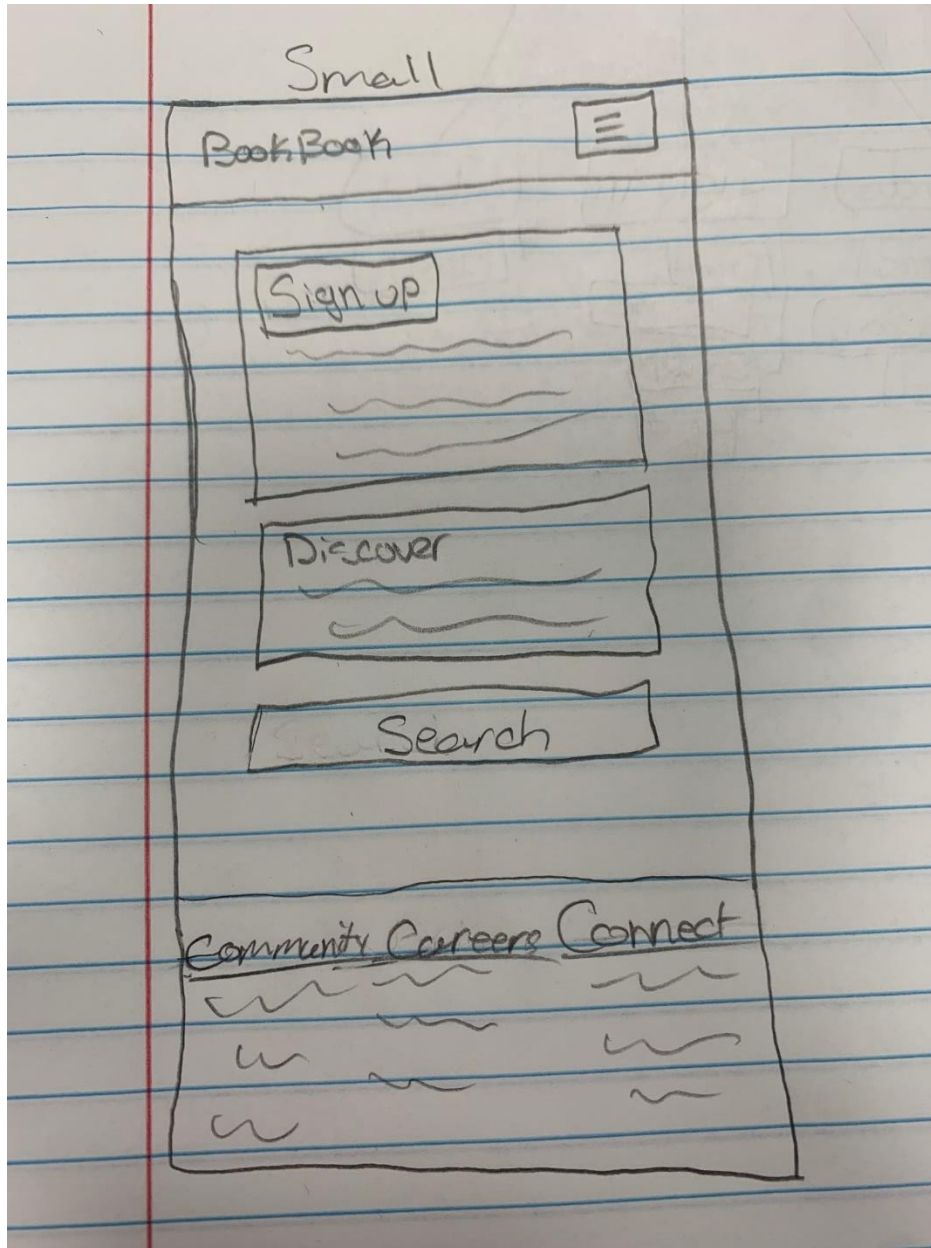 Small
BookBook
Sign up
Discover
Search
Community Careers Connect